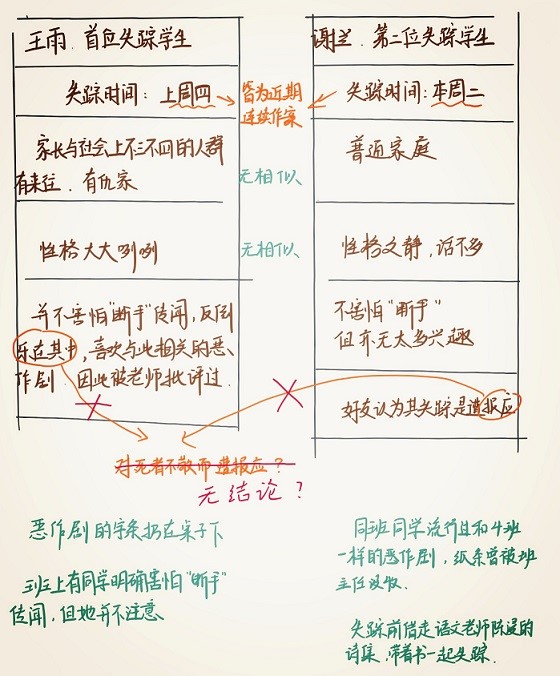 王雨．首位失踪学生
失踪时间：上周四
家长与社会上不三不四的人群
有来往．有仇家
性格大大咧咧
并不害怕“断手”传闻，反倒
乐在其中，喜欢与此相关的恶
作剧．因此被老师批评过．
皆为近期
连续作案
无相似
无相似
谢兰．第二位失踪学生
失踪时间：本周二
普通家庭
性格文静，话不多
不害怕“断手”
但亦无太多兴趣
好友认为其失踪是遭报应
对死者不敬而遭报应？
无结论？
恶作剧的字条扔在桌子下
班上有同学明确害怕“断手”
传闻，但她并不注意．
同班同学流行且和4班
一样的恶作剧，纸条曾被班
主任没收．
失踪前借走语文老师陈
诗集，带着书一起失踪．